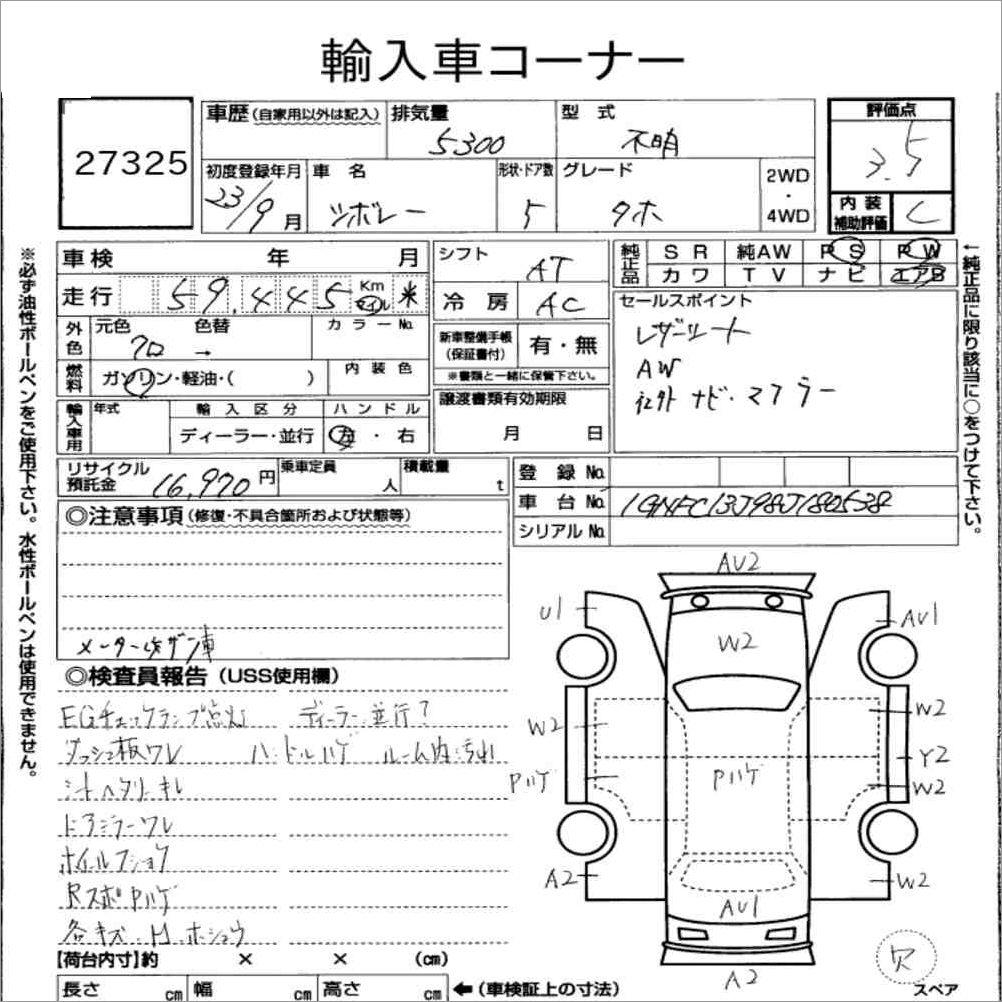 輸入車コーナー
27325
車歴 (自家用以外は記入) 排気量 5300 型式 不明
評価点 3.5
初度登録年月 23/9月 車名 シボレー 形状・ドア数 5 グレード タホ 2WD・4WD
内装補助評価 C
車検 年 月
走行 59,445 Km マイル *
外色 元色 クロ 色替 → カラーNo.
燃料 ガソリン・軽油・( ) 内装色
輸入車用 年式 輸入区分 ディーラー・並行 ハンドル 左・右
シフト AT
冷房 AC
新車整備手帳(保証書付) 有・無
※書類と一緒に保管下さい。
譲渡書類有効期限 月 日
純正品 SR 純AW PS PW
カワ TV ナビ エアB
セールスポイント
レザーシート
AW
社外ナビ・マフラー
リサイクル預託金 16,970円 乗車定員 人 積載量 t
登録No.
車台No. 1GNFC13J98J180538
シリアルNo.
◎注意事項 (修復・不具合箇所および状態等)
メーター改ザン車
◎検査員報告 (USS使用欄)
EGチェックランプ点灯 ディーラー並行?
ダッシュ板ワレ ハンドルハゲ ルーム内汚れ
シートヘタリ・キレ
ドアミラーワレ
ホイルフショク
RスポPハゲ
各キズ・H・ホシュウ
【荷台内寸】約 × × (cm)
長さ cm 幅 cm 高さ cm ←(車検証上の寸法)
※必ず油性ボールペンをご使用下さい。水性ボールペンは使用できません。
←純正品に限り該当に○をつけて下さい。
AU2
U1
AU1
W2
W2
W2
Y2
Pハゲ
Pハゲ
W2
A2
W2
AU1
A2
欠
スペア